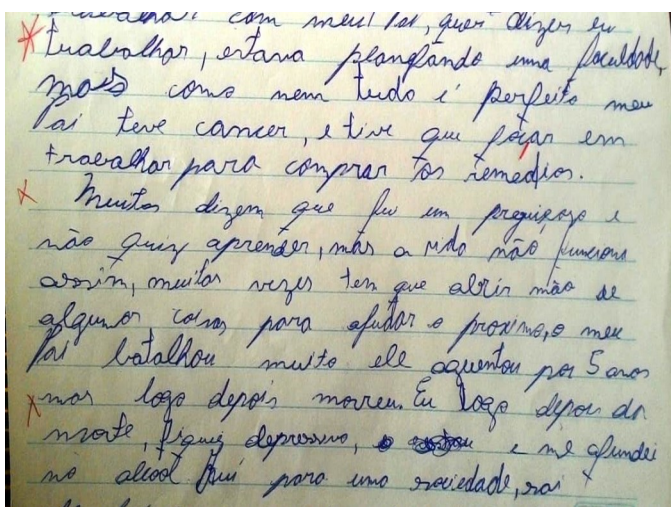 trabalhar com meu Pai, quer dizer eu
trabalhar, estava planejando uma faculdade,
mais como nem tudo é perfeito meu
Pai teve cancer, e tive que focar em
trabalhar para comprar os remedios.
Muitos dizem que fui um preguiçozo e
não quiz aprender, mas a vida não funciona
assim, muitas vezes tem que abrir mão de
algumas coisas para ajudar o proximo, o meu
Pai batalhou muito ele aguentou por 5 anos
mas logo depois morreu. Eu logo depois da
morte, fiquei depressivo, e me afundei
no alcool fui para uma sociedade, sai